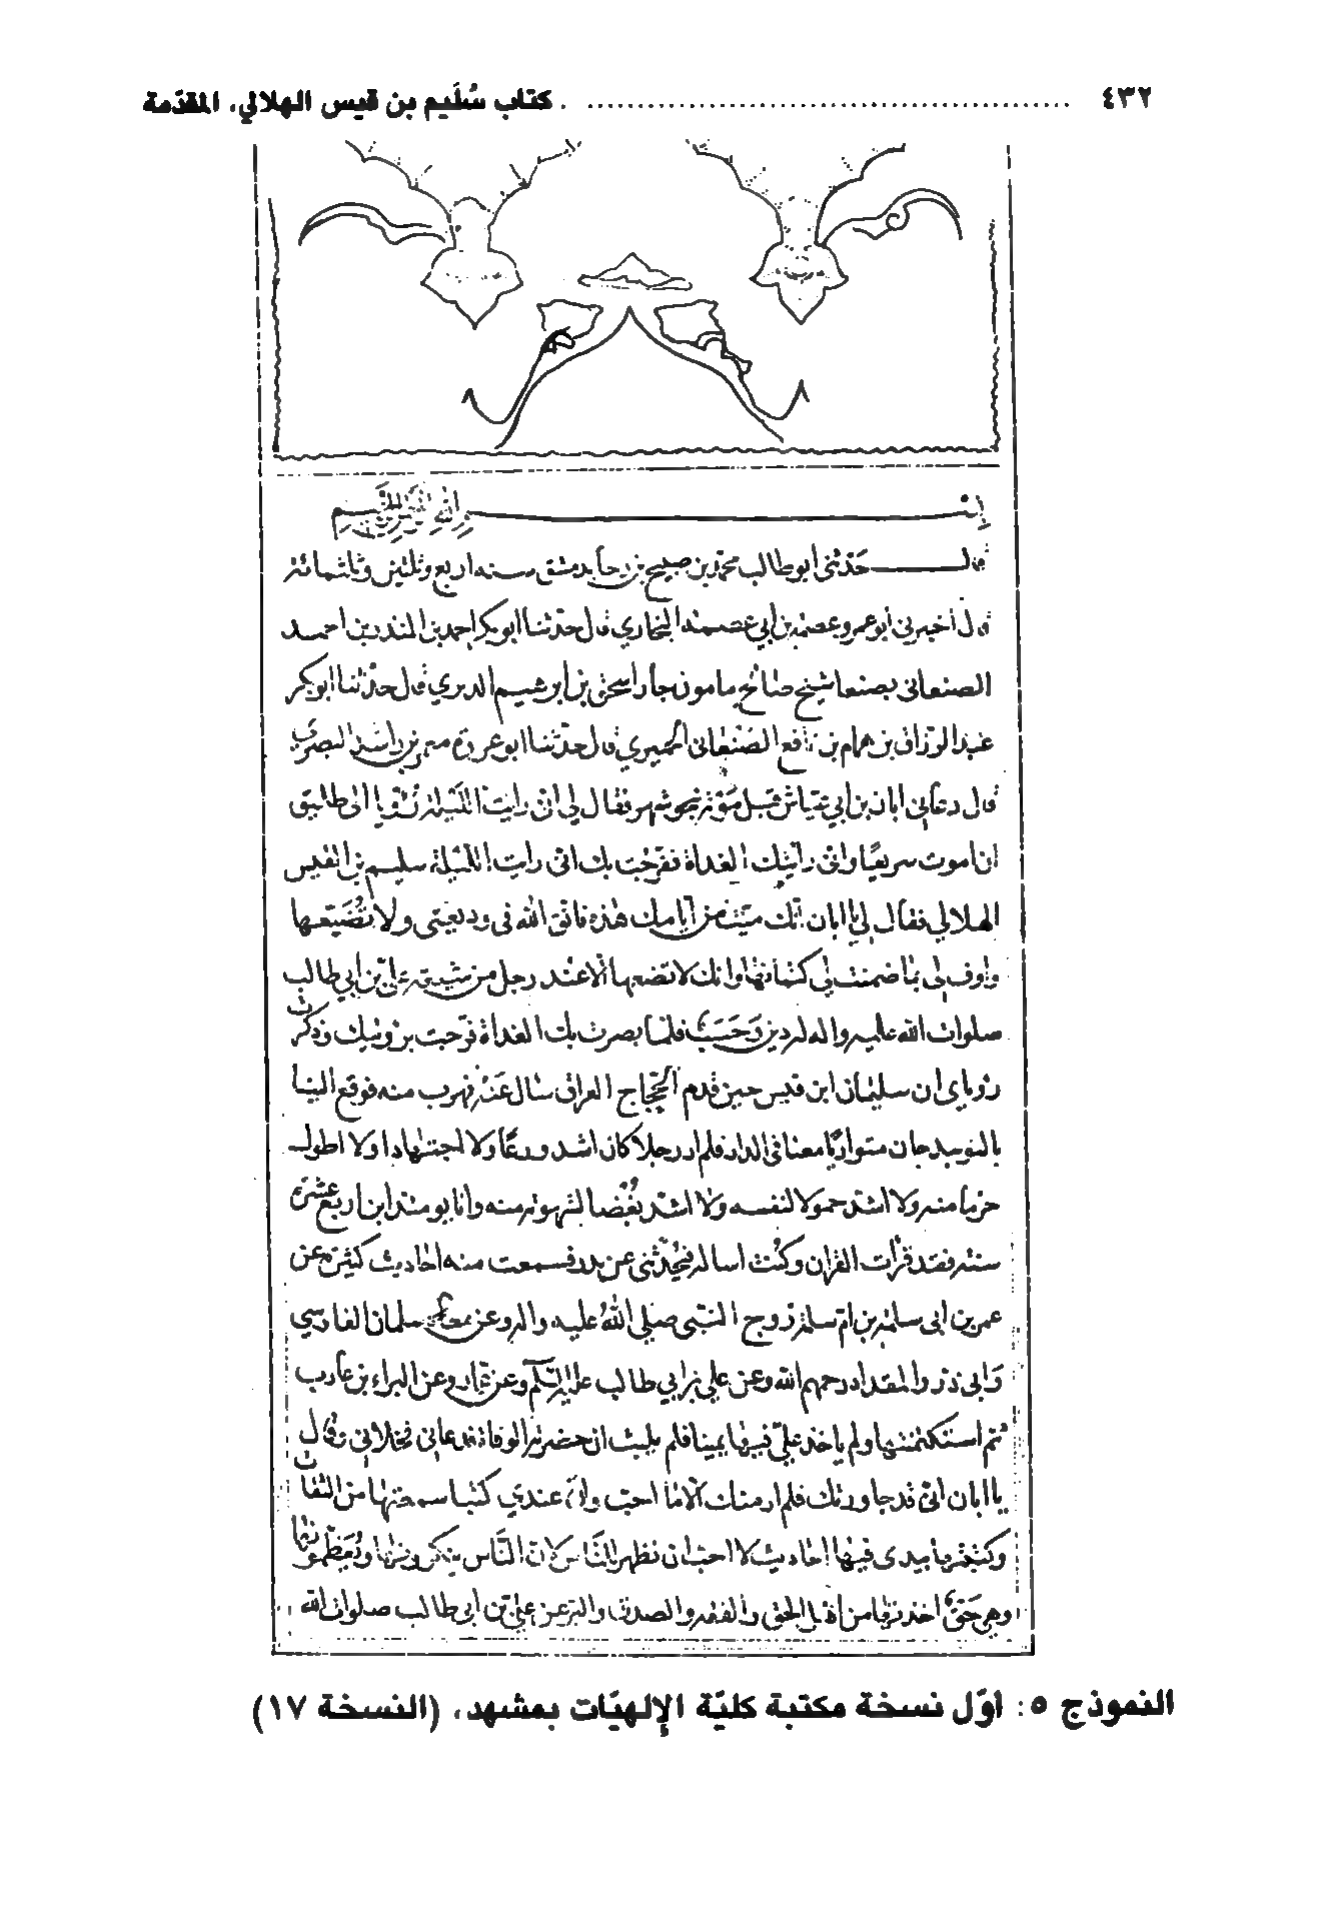 ٤٣٢ ........ كتاب سُلَيم بن قيس الهلالي، المقدّمة
بسم الله الرحمن الرحيم
قال حدثني ابوطالب محمد بن صبيح بن رجا بدمشق سنه اربع وثلثين وثلثمائة
قال اخبرني ابو عمرو عصمة بن ابي عصمة البخاري قال حدثنا ابوبكر احمد بن المنذر بن احمد
الصنعاني بصنعا شيخ صالح مامون جار اسحق بن ابرهيم الدبري قال حدثنا ابوبكر
عبد الرزاق بن همام بن نافع الصنعاني الحميري قال حدثنا ابو عروة معمر بن راشد البصري
قال دعاني ابان بن ابي عياش قبل موته بنحو شهر فقال لي اني رايت الليلة رؤيا اني خليق
ان اموت سريعًا واني رايتك الغداة ففرحت بك اني رايت الليلة سليم بن القيس
الهلالي فقال لي يا ابان انك ميت من ايامك هذه فاتق الله في وديعتي ولا تضيعها
واوف لي بما ضمنت لي كتمانها وانك لا تضعها الا عند رجل من شيعة علي بن ابي طالب
صلوات الله عليه واله له دين وحسب فلما بصرت بك الغداة فرحت برؤيتك وذكرت
رؤياي ان سليمان ابن قيس حين قدم الحجاج العراق سال عنه فهرب منه فوقع الينا
بالنوبندجان متواريًا معنا في الدار فلم ار رجلا كان اشد ورعًا ولا اجتهادا ولا اطول
حزنا منه ولا اشد خمولا لنفسه ولا اشد بغضا لشهوته منه وانا يومئذ ابن اربع عشرة
سنة فقد قرأت القران وكنت اساله فيحدثني عن بدر فسمعت منه احاديث كثيرة عن
عمر بن ابي سلمة بن ام سلمة زوج النبي صلي الله عليه واله وعن سلمان الفارسي
وابي ذر والمقداد رحمهم الله وعن علي بن ابي طالب عليه السلم وعن عمار وعن البراء بن عازب
ثم استكتمنيها ولم ياخذ علي فيها يمينا فلم يلبث ان حضرته الوفاة فدعاني فخلا بي وقال
يا ابان اني قد جاورتك فلم ار منك الا ما احب وان عندي كتبا سمعتها من الثقات
وكتبتها بيدي فيها احاديث لا احب ان تظهر للناس لان الناس ينكرونها ويعظمونها
وهي حق اخذتها من اهل الحق والفقه والصدق والبر عن علي بن ابي طالب صلوات الله
النموذج ٥: اوّل نسخة مكتبة كليّة الإلهيّات بمشهد، (النسخة ١٧)